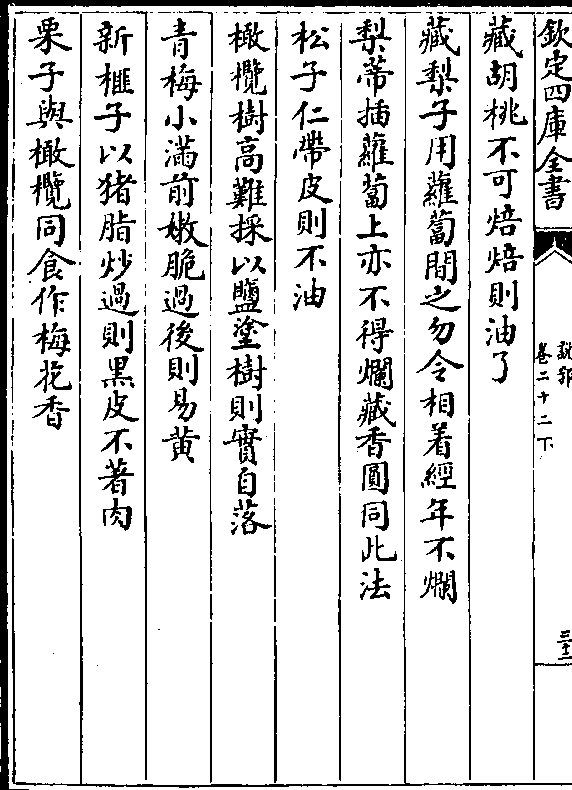 欽定四庫全書
說郛
卷二十二下
三十二
藏胡桃不可焙焙則油了
藏梨子用蘿蔔間之勿令相着經年不爛
梨蒂插蘿蔔上亦不得爛藏香圓同此法
松子仁帶皮則不油
橄欖樹高難採以鹽塗樹則實自落
青梅小滿前嫩脆過後則易黄
新榧子以猪脂炒過則黑皮不著肉
栗子與橄欖同食作梅花香